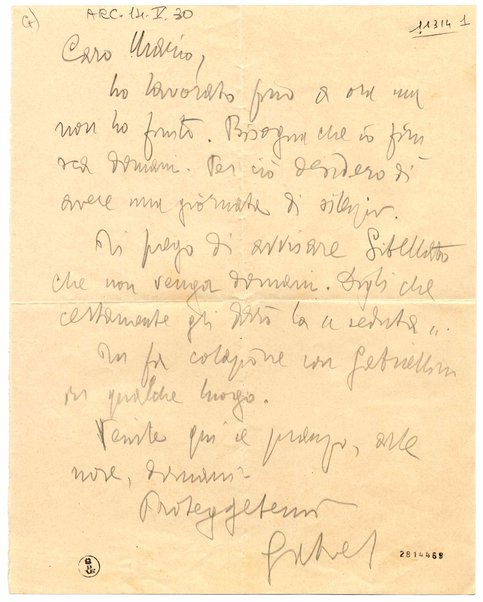 ARC. 14. V. 30
11314 1
Caro
ho lavorato fino a ora ma
non ho finito. Bisogna che io fini
sca domani. Per ciò desidero di
avere una giornata di silenzio.
Ti prego di avvisare
che non venga domani. Digli che
certamente gli darò la "seduta".
Tu fa colazione con Gabriellino
in qualche luogo.
Venite qui a pranzo, alle
nove, domani.
Proteggetemi
Gabriel
2814469